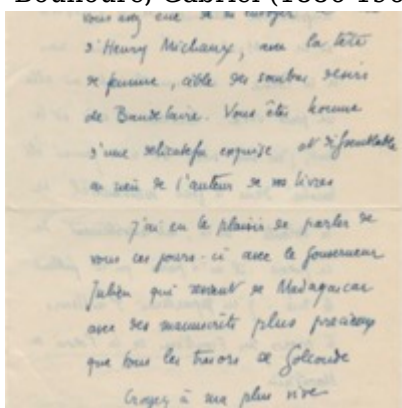 Bounoure, Gabriel (1886-196
vous avez eue de m'envoyer
d'Henry Michaux, avec la tête
de femme, cible des sombres désirs
de Baudelaire. Vous êtes homme
d'une délicatesse exquise et
au
de l'auteur de vos livres
J'ai eu le plaisir de parler de
vous ces jours-ci avec le Gouverneur
Julien qui revient de Madagascar
avec des manuscrits plus précieux
que tous les trésors de Golconde
Croyez à ma plus vive